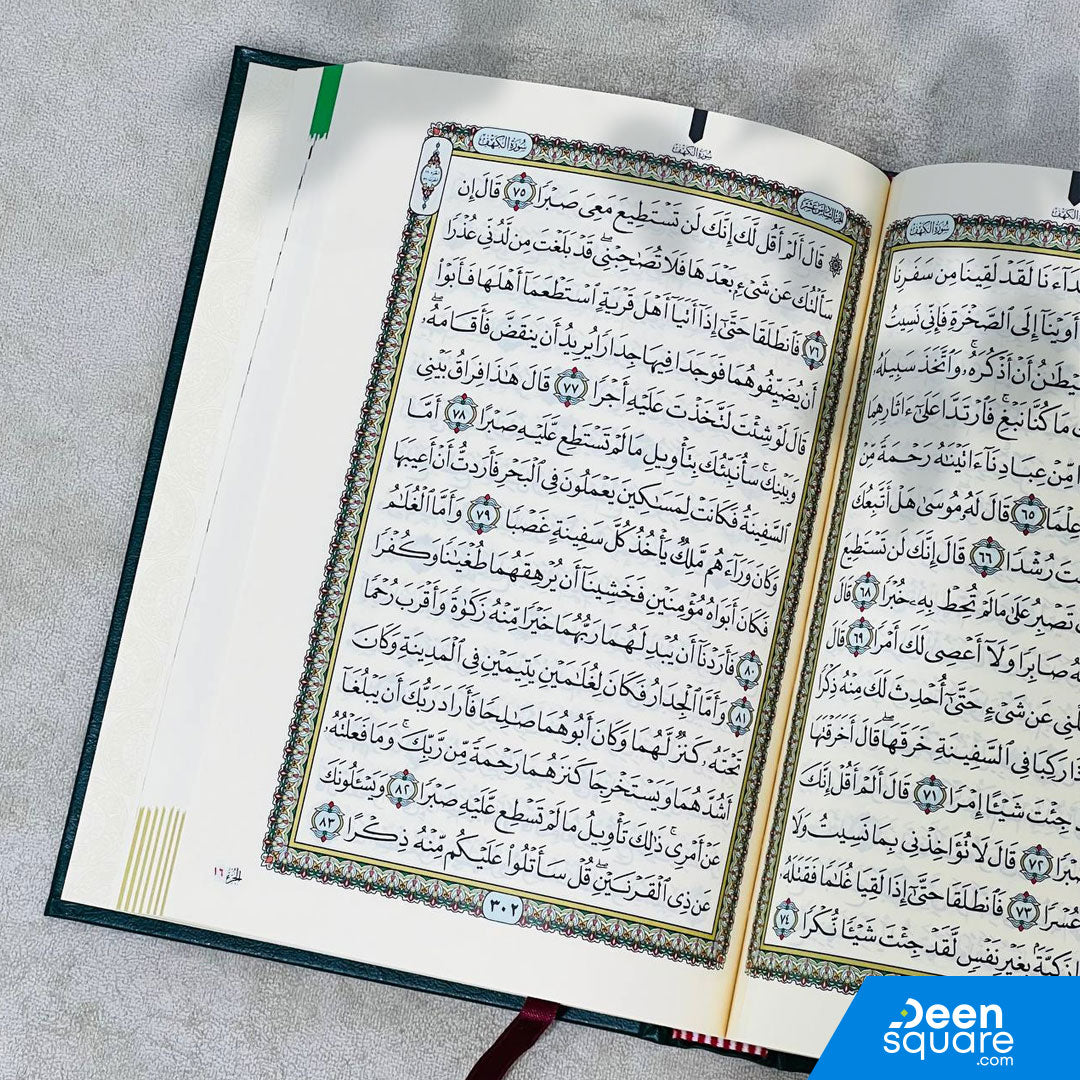 سُورَةُ الكَهْفِ
سُورَةُ الكَهْفِ
لَقَدۡ لَقِينَا مِن سَفَرِنَا
أَوَيۡنَآ إِلَى ٱلصَّخۡرَةِ فَإِنِّي نَسِيتُ
أَنۡ أَذۡكُرَهُۥۚ وَٱتَّخَذَ سَبِيلَهُۥ
مَا كُنَّا نَبۡغِۚ فَٱرۡتَدَّا عَلَىٰٓ ءَاثَارِهِمَا
مِّنۡ عِبَادِنَآ ءَاتَيۡنَٰهُ رَحۡمَةٗ مِّنۡ
عِلۡمٗا ٦٥ قَالَ لَهُۥ مُوسَىٰ هَلۡ أَتَّبِعُكَ
رُشۡدٗا ٦٦ قَالَ إِنَّكَ لَن تَسۡتَطِيعَ
تَصۡبِرُ عَلَىٰ مَا لَمۡ تُحِطۡ بِهِۦ خُبۡرٗا ٦٨ قَالَ
صَابِرٗا وَلَآ أَعۡصِي لَكَ أَمۡرٗا ٦٩ قَالَ
عَن شَيۡءٍ حَتَّىٰٓ أُحۡدِثَ لَكَ مِنۡهُ ذِكۡرٗا
رَكِبَا فِي ٱلسَّفِينَةِ خَرَقَهَاۖ قَالَ أَخَرَقۡتَهَا
جِئۡتَ شَيۡـًٔا إِمۡرٗا ٧١ قَالَ أَلَمۡ أَقُلۡ إِنَّكَ
صَبۡرٗا ٧٢ قَالَ لَا تُؤَاخِذۡنِي بِمَا نَسِيتُ وَلَا
عُسۡرٗا ٧٣ فَٱنطَلَقَا حَتَّىٰٓ إِذَا لَقِيَا غُلَٰمٗا فَقَتَلَهُۥ
زَكِيَّةَۢ بِغَيۡرِ نَفۡسٖ لَّقَدۡ جِئۡتَ شَيۡـٔٗا نُّكۡرٗا ٧٤
سُورَةُ الكَهْفِ
الجزء السادس عشر
سُورَةُ الكَهْفِ
۞ قَالَ أَلَمۡ أَقُل لَّكَ إِنَّكَ لَن تَسۡتَطِيعَ مَعِيَ صَبۡرٗا ٧٥ قَالَ إِن
سَأَلۡتُكَ عَن شَيۡءِۭ بَعۡدَهَا فَلَا تُصَٰحِبۡنِيۖ قَدۡ بَلَغۡتَ مِن لَّدُنِّي عُذۡرٗا
٧٦ فَٱنطَلَقَا حَتَّىٰٓ إِذَآ أَتَيَآ أَهۡلَ قَرۡيَةٍ ٱسۡتَطۡعَمَآ أَهۡلَهَا فَأَبَوۡاْ
أَن يُضَيِّفُوهُمَا فَوَجَدَا فِيهَا جِدَارٗا يُرِيدُ أَن يَنقَضَّ فَأَقَامَهُۥۖ
قَالَ لَوۡ شِئۡتَ لَتَّخَذۡتَ عَلَيۡهِ أَجۡرٗا ٧٧ قَالَ هَٰذَا فِرَاقُ بَيۡنِي
وَبَيۡنِكَۚ سَأُنَبِّئُكَ بِتَأۡوِيلِ مَا لَمۡ تَسۡتَطِع عَّلَيۡهِ صَبۡرًا ٧٨ أَمَّا
ٱلسَّفِينَةُ فَكَانَتۡ لِمَسَٰكِينَ يَعۡمَلُونَ فِي ٱلۡبَحۡرِ فَأَرَدتُّ أَنۡ أَعِيبَهَا
وَكَانَ وَرَآءَهُم مَّلِكٞ يَأۡخُذُ كُلَّ سَفِينَةٍ غَصۡبٗا ٧٩ وَأَمَّا ٱلۡغُلَٰمُ
فَكَانَ أَبَوَاهُ مُؤۡمِنَيۡنِ فَخَشِينَآ أَن يُرۡهِقَهُمَا طُغۡيَٰنٗا وَكُفۡرٗا
٨٠ فَأَرَدۡنَآ أَن يُبۡدِلَهُمَا رَبُّهُمَا خَيۡرٗا مِّنۡهُ زَكَوٰةٗ وَأَقۡرَبَ رُحۡمٗا
٨١ وَأَمَّا ٱلۡجِدَارُ فَكَانَ لِغُلَٰمَيۡنِ يَتِيمَيۡنِ فِي ٱلۡمَدِينَةِ وَكَانَ
تَحۡتَهُۥ كَنزٞ لَّهُمَا وَكَانَ أَبُوهُمَا صَٰلِحٗا فَأَرَادَ رَبُّكَ أَن يَبۡلُغَآ
أَشُدَّهُمَا وَيَسۡتَخۡرِجَا كَنزَهُمَا رَحۡمَةٗ مِّن رَّبِّكَۚ وَمَا فَعَلۡتُهُۥ
عَنۡ أَمۡرِيۚ ذَٰلِكَ تَأۡوِيلُ مَا لَمۡ تَسۡطِع عَّلَيۡهِ صَبۡرٗا ٨٢ وَيَسۡـَٔلُونَكَ
عَن ذِي ٱلۡقَرۡنَيۡنِۖ قُلۡ سَأَتۡلُواْ عَلَيۡكُم مِّنۡهُ ذِكۡرًا ٨٣
٣٠٢
الجزء ١٦
Deen
square
.com